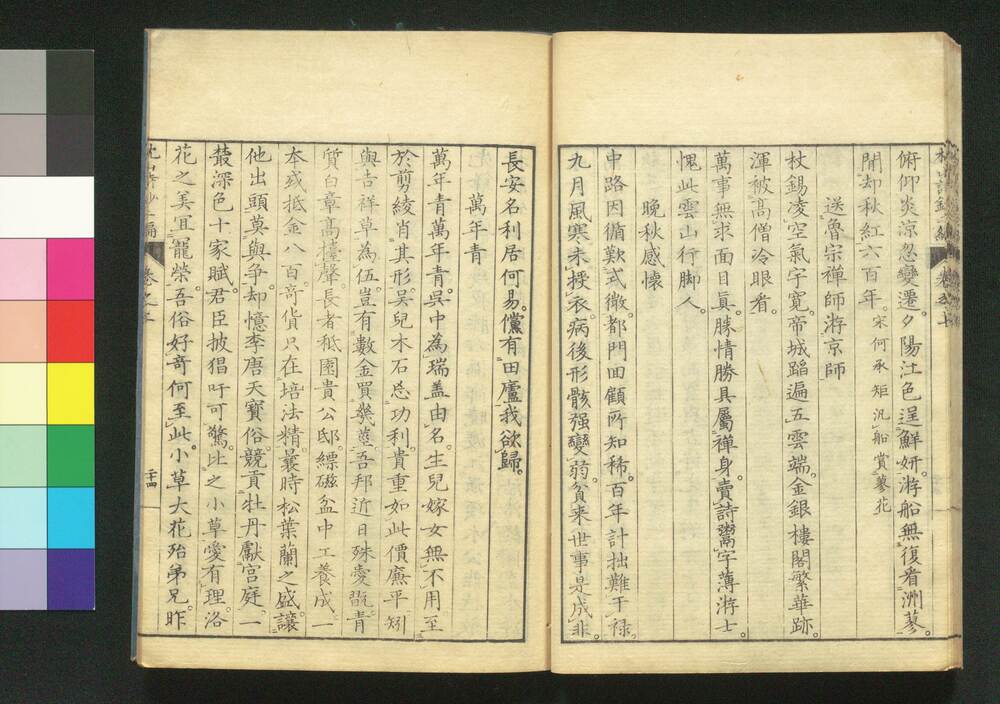 俯仰炎涼忽變遷。夕陽江色逞鮮妍。游船無復看洲蓼。
閒却秋紅六百年。宋何承矩汎船賞蓼花
送魯宗禪師游京師
杖錫凌空氣宇寬。帝城蹈遍五雲端。金銀樓閣繁華跡。
渾被高僧冷眼看。
萬事無求面目眞。勝情勝具屬禪身。賣詩鬻字薄游士。
愧此雲山行脚人。
晚秋感懷
中路因循歎式微。都門回顧所知稀。百年計拙難干祿。
九月風寒未授衣。病後形骸强變弱。貧来世事是成非。
長安名利居何易。儻有田廬我欲歸。
萬年青
萬年青萬年青。呉中為瑞盖由名。生兒嫁女無不用。至
於剪綾肖其形。吴兒木石忘功利。貴重如此價廉平。矧
與吉祥草為伍。豈有數金買幾莖。吾邦近日殊愛翫。青
質白章高擡聲。長者秪園貴公邸。縹磁盆中工養成。一
本或抵金八百。奇貨只在培法精。曩時松葉蘭之盛。讓
他出頭莫與争。却憶李唐天寶俗。競貢牡丹獻宮庭。一
叢深色十家賦。君臣披猖吁可驚。比之小草愛有理。洛
花之美宜寵榮。吾俗好奇何至此。小草大花殆弟兄。昨
卷之
二十四